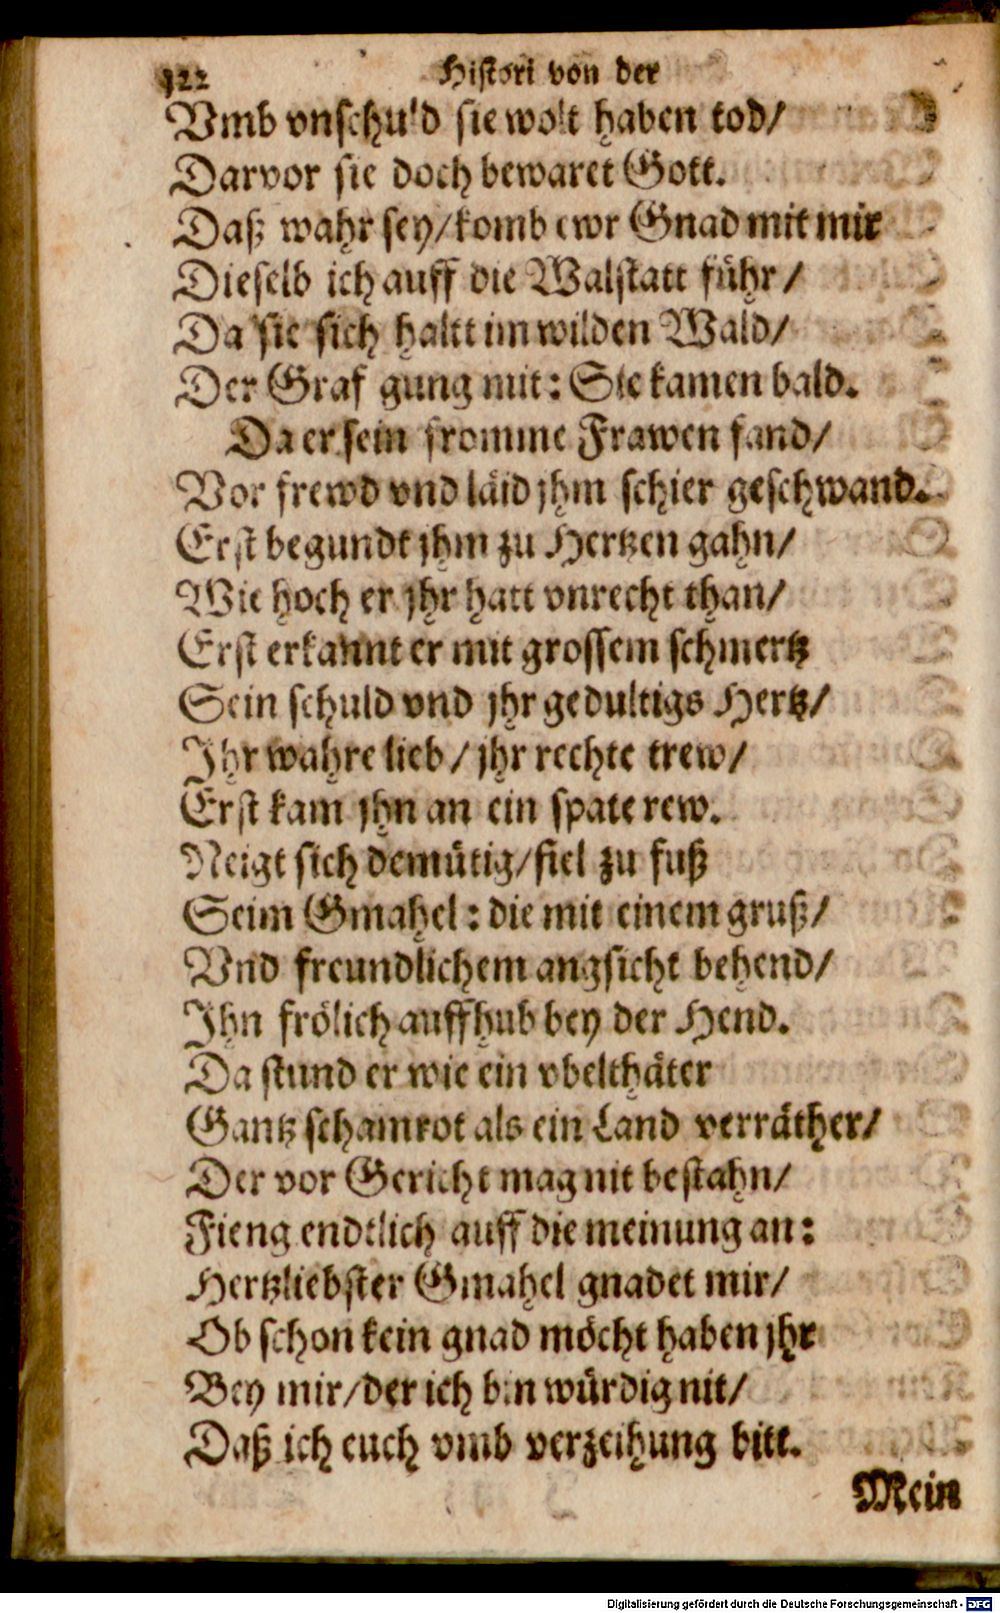 122 Histori von der
Vmb vnschuld sie wolt haben tod/
Darvor sie doch bewaret Gott.
Daß wahr sey/komb ewr Gnad mit mir
Dieselb ich auff die Walstatt führ/
Da sie sich haltt im wilden Wald/
Der Graf gung mit: Sie kamen bald.
Da er sein fromme Frawen fand/
Vor frewd vnd läid jhm schier geschwand.
Erst begundt jhm zu Hertzen gahn/
Wie hoch er jhr hatt vnrecht than/
Erst erkannt er mit grossem schmertz
Sein schuld vnd jhr gedultigs Hertz/
Ihr wahre lieb/jhr rechte trew/
Erst kam jhn an ein spate rew.
Neigt sich demütig/fiel zu fuß
Seim Gmahel: die mit einem gruß/
Vnd freundlichem angsicht behend/
Ihn frölich auffhub bey der Hend.
Da stund er wie ein vbelthäter
Gantz schamrot als ein Land verräther/
Der vor Gericht mag nit bestahn/
Fieng endtlich auff die meinung an:
Hertzliebster Gmahel gnadet mir/
Ob schon kein gnad möcht haben jhr
Bey mir/der ich bin würdig nit/
Daß ich euch vmb verzeihung bitt.
Mein
Digitalisierung gefördert durch die Deutsche Forschungsgemeinschaft - DFG